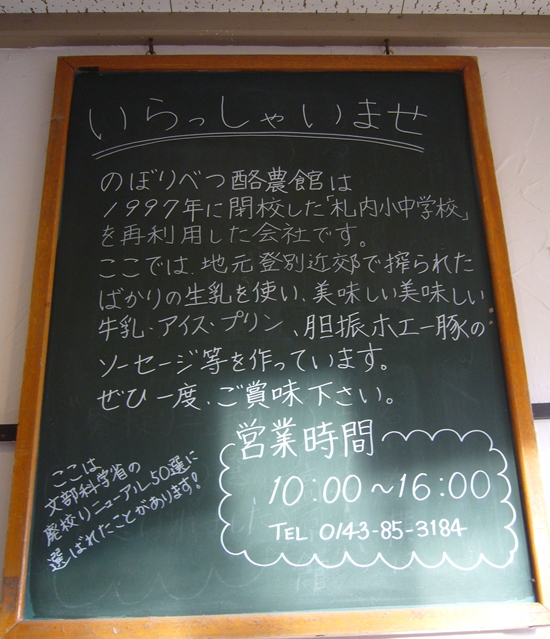 いらっしゃいませ
のぼりべつ酪農館は
1997年に閉校した「札内小中学校」
を再利用した会社です。
ここでは、地元登別近郊で搾られた
ばかりの生乳を使い、美味しい美味しい
牛乳・アイス・プリン、胆振ホエー豚の
ソーセージ等を作っています。
ぜひ一度、ご賞味下さい。
営業時間
10:00~16:00
TEL 0143-85-3184
ここは
文部科学省の
廃校リニューアル50選に
選ばれたことがあります!